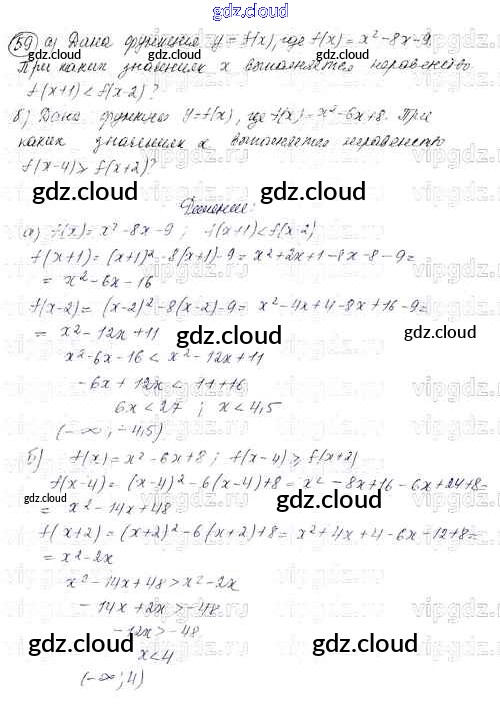 gdz.cloud
59) а) Дана функция y = f(x), где f(x) = x² - 8x - 9.
При каких значениях x выполняется неравенство
f(x+1) < f(x-2)?
б) Дана функция y = f(x), где f(x) = x² - 6x + 8. При
каких значениях x выполняется неравенство
f(x-4) > f(x+2)?
gdz.cloud gdz.cloud
Решение:
а) f(x) = x² - 8x - 9 ; f(x+1) < f(x-2)
f(x+1) = (x+1)² - 8(x+1) - 9 = x² + 2x + 1 - 8x - 8 - 9 =
= x² - 6x - 16
f(x-2) = (x-2)² - 8(x-2) - 9 = x² - 4x + 4 - 8x + 16 - 9 =
= x² - 12x + 11
x² - 6x - 16 < x² - 12x + 11
- 6x + 12x < 11 + 16
6x < 27 ; x < 4,5
(-∞; -4,5)
б) f(x) = x² - 6x + 8 ; f(x-4) > f(x+2)
f(x-4) = (x-4)² - 6(x-4) + 8 = x² - 8x + 16 - 6x + 24 + 8 =
= x² - 14x + 48
f(x+2) = (x+2)² - 6(x+2) + 8 = x² + 4x + 4 - 6x - 12 + 8 =
= x² - 2x
x² - 14x + 48 > x² - 2x
- 14x + 2x > -48
- 12x > -48
x < 4
(-∞; 4)
gdz.cloud